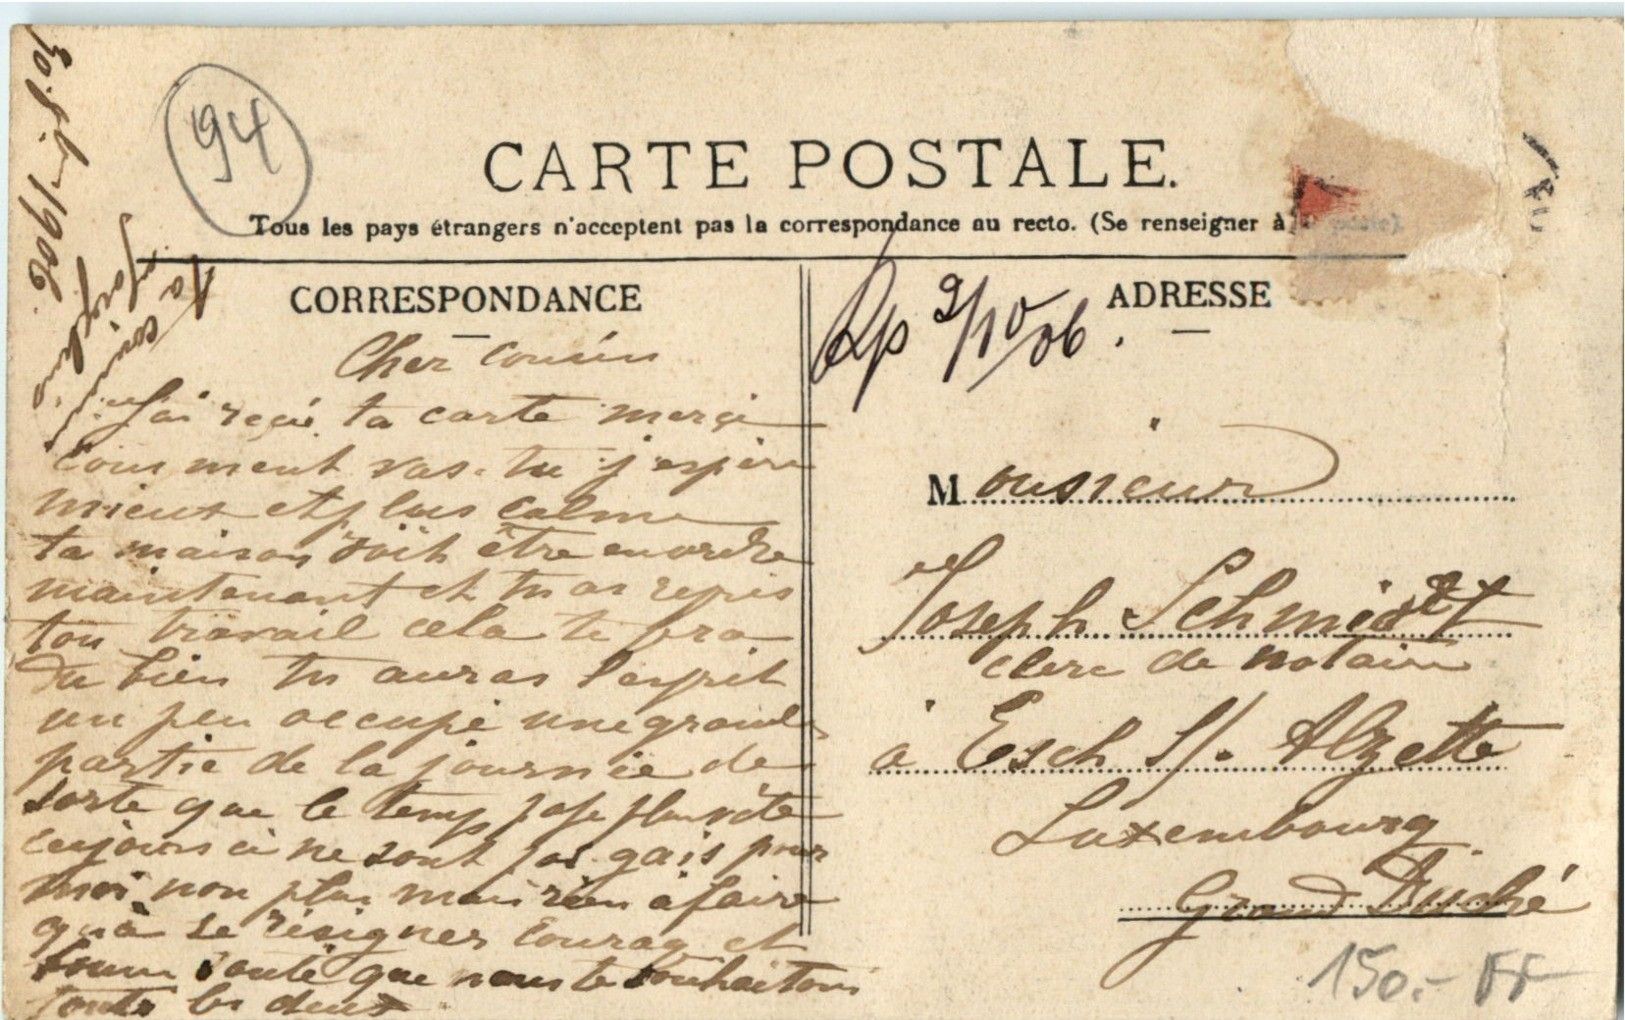 30 7bre 1906.
94
CARTE POSTALE.
Tous les pays étrangers n'acceptent pas la correspondance au recto. (Se renseigner à la poste).
CORRESPONDANCE
Cher Cousin
J'ai reçu ta carte merçi
comment vas-tu j'espère
mieux et plus calme
ta maison doit être en ordre
maintenant et tu as repris
ton travail cela te fera
du bien tu auras l'esprit
un peu occupé une grande
partie de la journée de
sorte que le temp passe plus vite
ces jours ci ne sont pas gais pour
moi non plus mais rien à faire
qu'à se résigner courag et
bonne santé que nous te souhaitons
toute les deux
Ta cousine
Joséphine
Rp 9/10/06.
ADRESSE
Monsieur
Joseph Schmidt
clerc de notaire
à Esch S/. Alzette
Luxembourg
Grand Duché
150.- FF